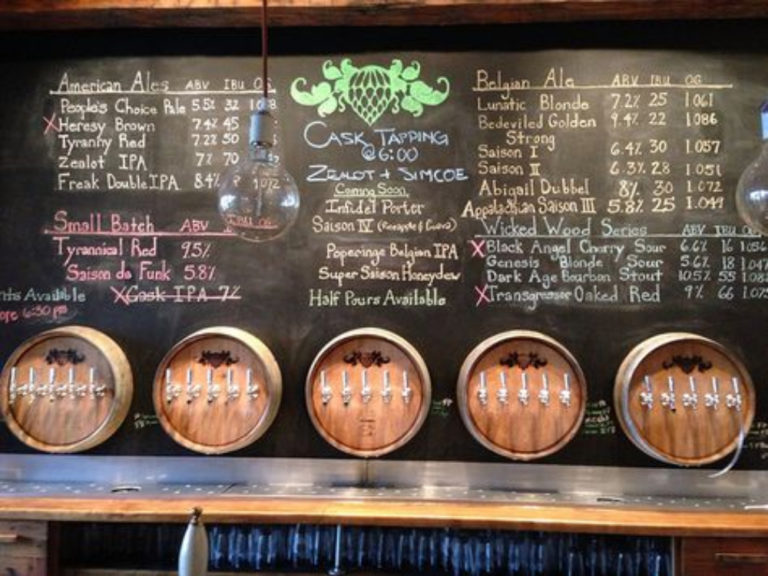 American Ales ABV IBU OG
People's Choice Pale 5.5%
X Heresy Brown 7.4% 45
Tyranny Red 7.2% 50
Zealot IPA 7% 70
Freak Double IPA 8.4%
Small Batch ABV IBU OG
Tyrannical Red 9.5%
Saison de Funk 5.8%
X Cask IPA 7%
Available
6:30 pm
CASK TAPPING
@ 6:00
ZEALOT + SIMCOE
Coming Soon
Infidel Porter
Saison IV
Poperinge Belgian IPA
Super Saison Honeydew
Half Pours Available
Belgian Ale ABV IBU OG
Lunatic Blonde 7.2% 25 1.061
Bedeviled Golden 9.4% 22 1.086
Strong
Saison I 6.4% 30 1.057
Saison II 6.3% 28 1.051
Abigail Dubbel 8% 30 1.072
Appalachian Saison III 5.8% 25 1.049
Wicked Wood Series ABV IBU OG
X Black Angel Cherry Sour 6.6% 16 1.056
Genesis Blonde Sour 5.6% 18
Dark Age Bourbon Stout 10.5% 55
X Transgressor Oaked Red 9% 66